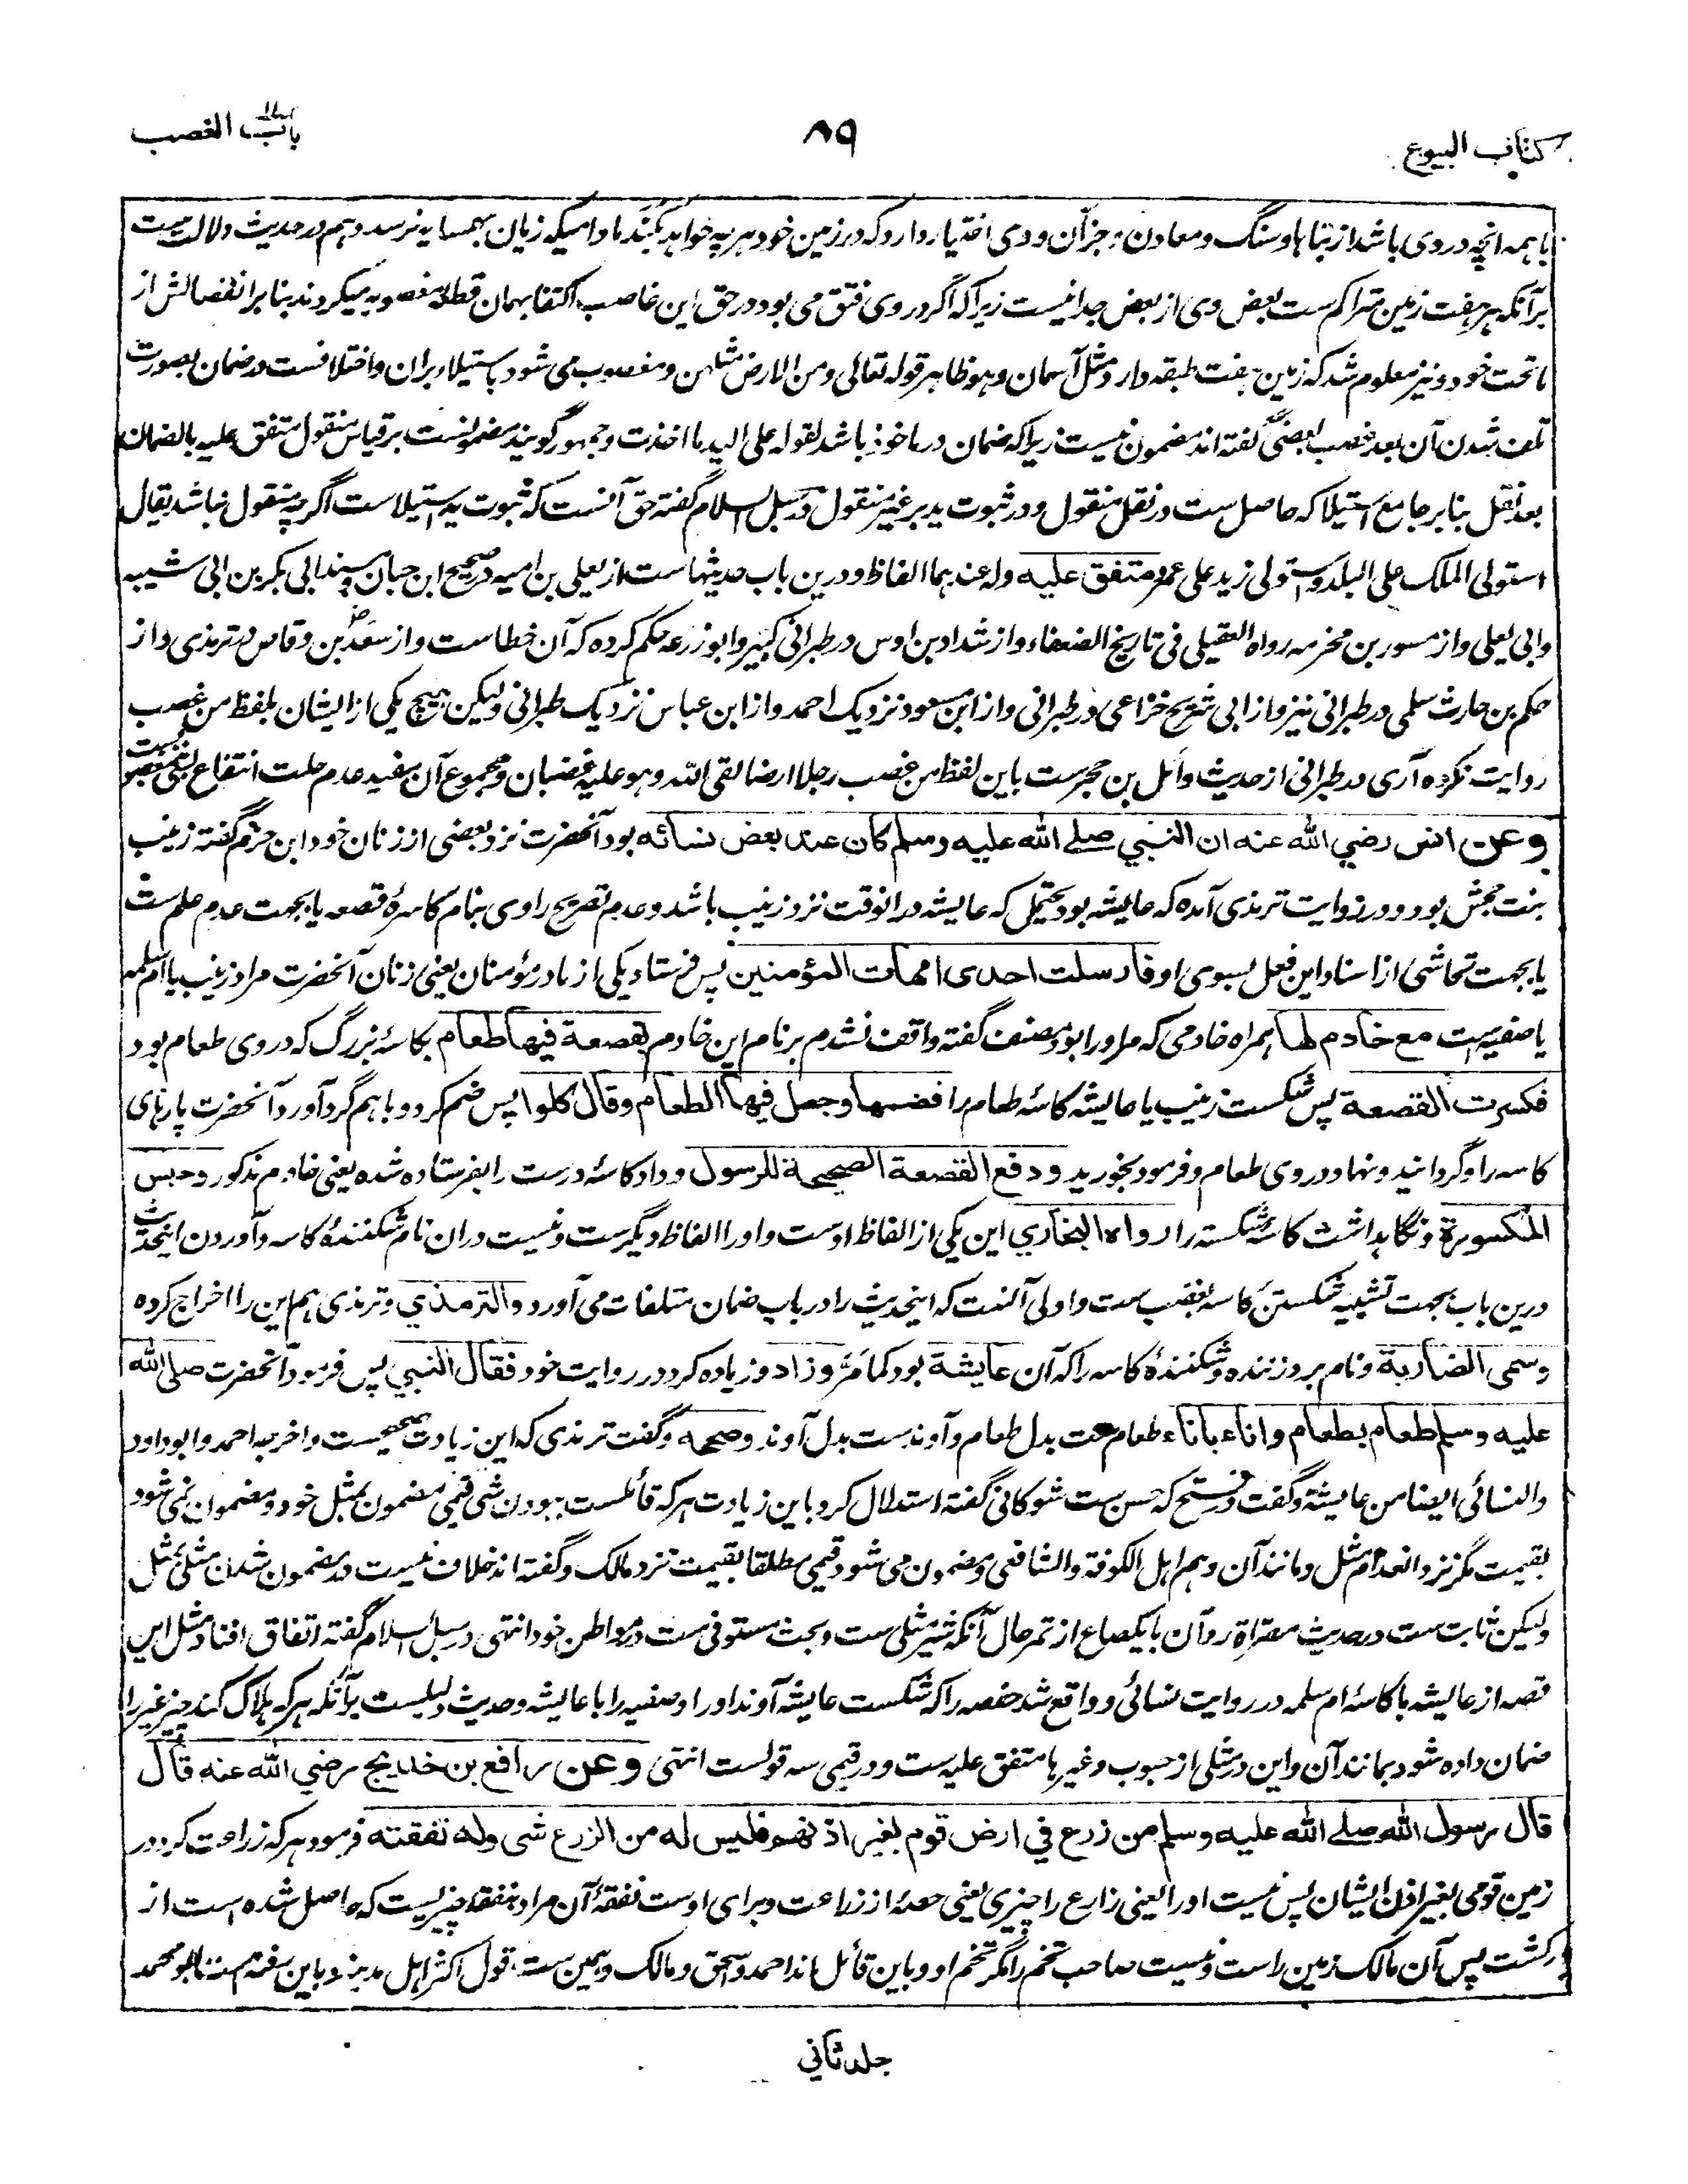 کتاب البیوع
۸۹
باب الغصب
با همه انچه در وی باشد از بناها و سنگ و معادن و جز آن و وی اختیار دارد که در زمین خود هر چه خواهد بکند مادامیکه زیان بهمسایه نرسد و هم در حدیث دلالت ست
بر آنکه هر هفت زمین متراکم ست بعض وی از بعض جدا نیست زیرا که اگر در وی فتق می بود در حق این غاصب اکتفا بهمان قطعه مغصوبه میکردند بنا بر انفصالش از
ما تحت خود و نیز معلوم شد که زمین هفت طبقه دارد مثل آسمان و هو ظاهر قوله تعالی ومن الارض مثلهن و مغصوب می شود باستیلا بران و اختلافست در ضمان بصورت
تلف شدن آن بعد غصب بعضی گفته اند مضمون نیست زیرا که ضمان در ماخوذ باشد لقوله علی الید ما اخذت و جمهور گویند مضمونست بر قیاس منقول متفق علیه بالضمان
بعد نقل بنا بر جامع استیلا که حاصل ست در نقل منقول و در ثبوت ید بر غیر منقول در سبل السلام گفته حق آنست که ثبوت ید استیلاست اگرچه منقول نباشد یقال
استولی الملک علی البلد و استولی زید علی عمرو متفق علیه وله عندهما الفاظ و درین باب حدیثهاست از یعلی بن امیه در صحیح ابن حبان و مسند ابی بکر بن ابی شیبه
وابی یعلی و از مسور بن مخرمه رواه العقیلی فی تاریخ الضعفاء و از شداد بن اوس در طبرانی کبیر و ابو زرعه حکم کرده که آن خطاست و از سعد بن وقاص در ترمذی و از
حکم بن حارث سلمی در طبرانی نیز و از ابی شریح خزاعی در طبرانی و از ابن مسعود نزدیک احمد و از ابن عباس نزدیک طبرانی ولیکن هیچ یکی از ایشان بلفظ من غصب
روایت نکرده آری در طبرانی از حدیث وائل بن حجر ست باین لفظ من غصب رجلا ارضا لقی الله وهو علیه غضبان و مجموع آن مفید عدم حلت انتفاع بشی مغصوب ست
وعن انس رضي الله عنه ان النبي صلے الله عليه وسلم كان عند بعض نسائه بود آنحضرت نزد بعضی از زنان خود ابن حزم گفته زینب
بنت جحش بود و در روایت ترمذی آمده که عایشه بود یحتمل که عایشه درانوقت نزد زینب باشد و عدم تصریح راوی بنام کاسره قصعه یا بجهت عدم علم ست
یا بجهت تحاشی از اسناد این فعل بسوی او فارسلت احدى امهات المؤمنين پس فرستاد یکی از مادر مؤمنان یعنی زنان آنحضرت مراد زینب یا ام سلمه
یا صفیه ست مع خادم لها همراه خادمی که مر او را بود مصنف گفته واقف نشدم بر نام این خادم بقصعة فيها طعام بکاسه بزرگ که در وی طعام بود
فكسرت القصعة پس شکست زینب یا عایشه کاسه طعام را فضمها وجعل فيها الطعام وقال كلوا پس ضم کرد و باهم گرد آورد آنحضرت پارهای
کاسه را و گردانید و نهاد در وی طعام و فرمود بخورید ودفع القصعة الصحيحة للرسول و داد کاسه درست را بفرستاده شده یعنی خادم مذکور وحبس
المكسورة و نگاهداشت کاسه شکسته را رواه البخاري این یکی از الفاظ اوست و او را الفاظ دیگرست و نیست دران نام شکننده کاسه و آوردن اینحدیث
درین باب بجهت تشبیه شکستن کاسه بغصب ست و اولی آنست که اینحدیث را در باب ضمان متلفات می آورد والترمذي و ترمذی هم این را اخراج کرده
وسمى الضاربة و نام برد زننده و شکننده کاسه را که آن عايشة بود کما مَرَّ وزاد و زیاده کرد در روایت خود فقال النبي پس فرمود آنحضرت صلی الله
علیه وسلم طعام بطعام واناء باناء طعام ست بدل طعام و آوند ست بدل آوند وصححه و گفت ترمذی که این زیادت صحیحست و اخرجه احمد و ابوداود
والنسائی ایضا من عایشة و گفت در فتح که حسن ست شوکانی گفته استدلال کرد باین زیادت هر که قائلست ببودن شی قیمی مضمون بمثل خود و مضمون نمی شود
بقیمت مگر نزد انعدام مثل و مانند آن وهم اهل الکوفة والشافعی و مضمون می شود قیمی مطلقا بقیمت نزد مالک و گفته اند خلاف نیست در مضمون شدن مثلی بمثل
ولیکن ثابت ست در حدیث مصراة رد آن با یکصاع از تمر حال آنکه شیر مثلی ست و بحث مستوفی ست در مواطن خود انتهی در سبل السلام گفته اتفاق افتاد مثل این
قصه از عایشه با کاسه ام سلمه در روایت نسائی و واقع شد حفصه را که شکست عایشه آوند او را و صفیه را با عایشه و حدیث دلیلست برآنکه هر که هلاک کند چیز غیر را
ضمان داده شود بمانند آن و این در مثلی از حبوب و غیرها متفق علیه ست و در قیمی سه قولست انتهی وعن رافع بن خديج رضي الله عنه قال
قال رسول الله صلے الله عليه وسلم من زرع في ارض قوم بغير اذنهم فليس له من الزرع شى وله نفقته فرمود هر که زراعت کرد در
زمین قومی بغیر اذن ایشان پس نیست او را یعنی زارع را چیزی یعنی حصه از زراعت و برای اوست نفقه آن مراد بنفقه چیزیست که حاصل شده است از
کشت پس آن مالک زمین راست و نیست صاحب تخم را مگر تخم او و باین قائل اند احمد و اسحق و مالک و همین ست قول اکثر اهل مدینه و باین رفته است ابو محمد
جلد ثاني